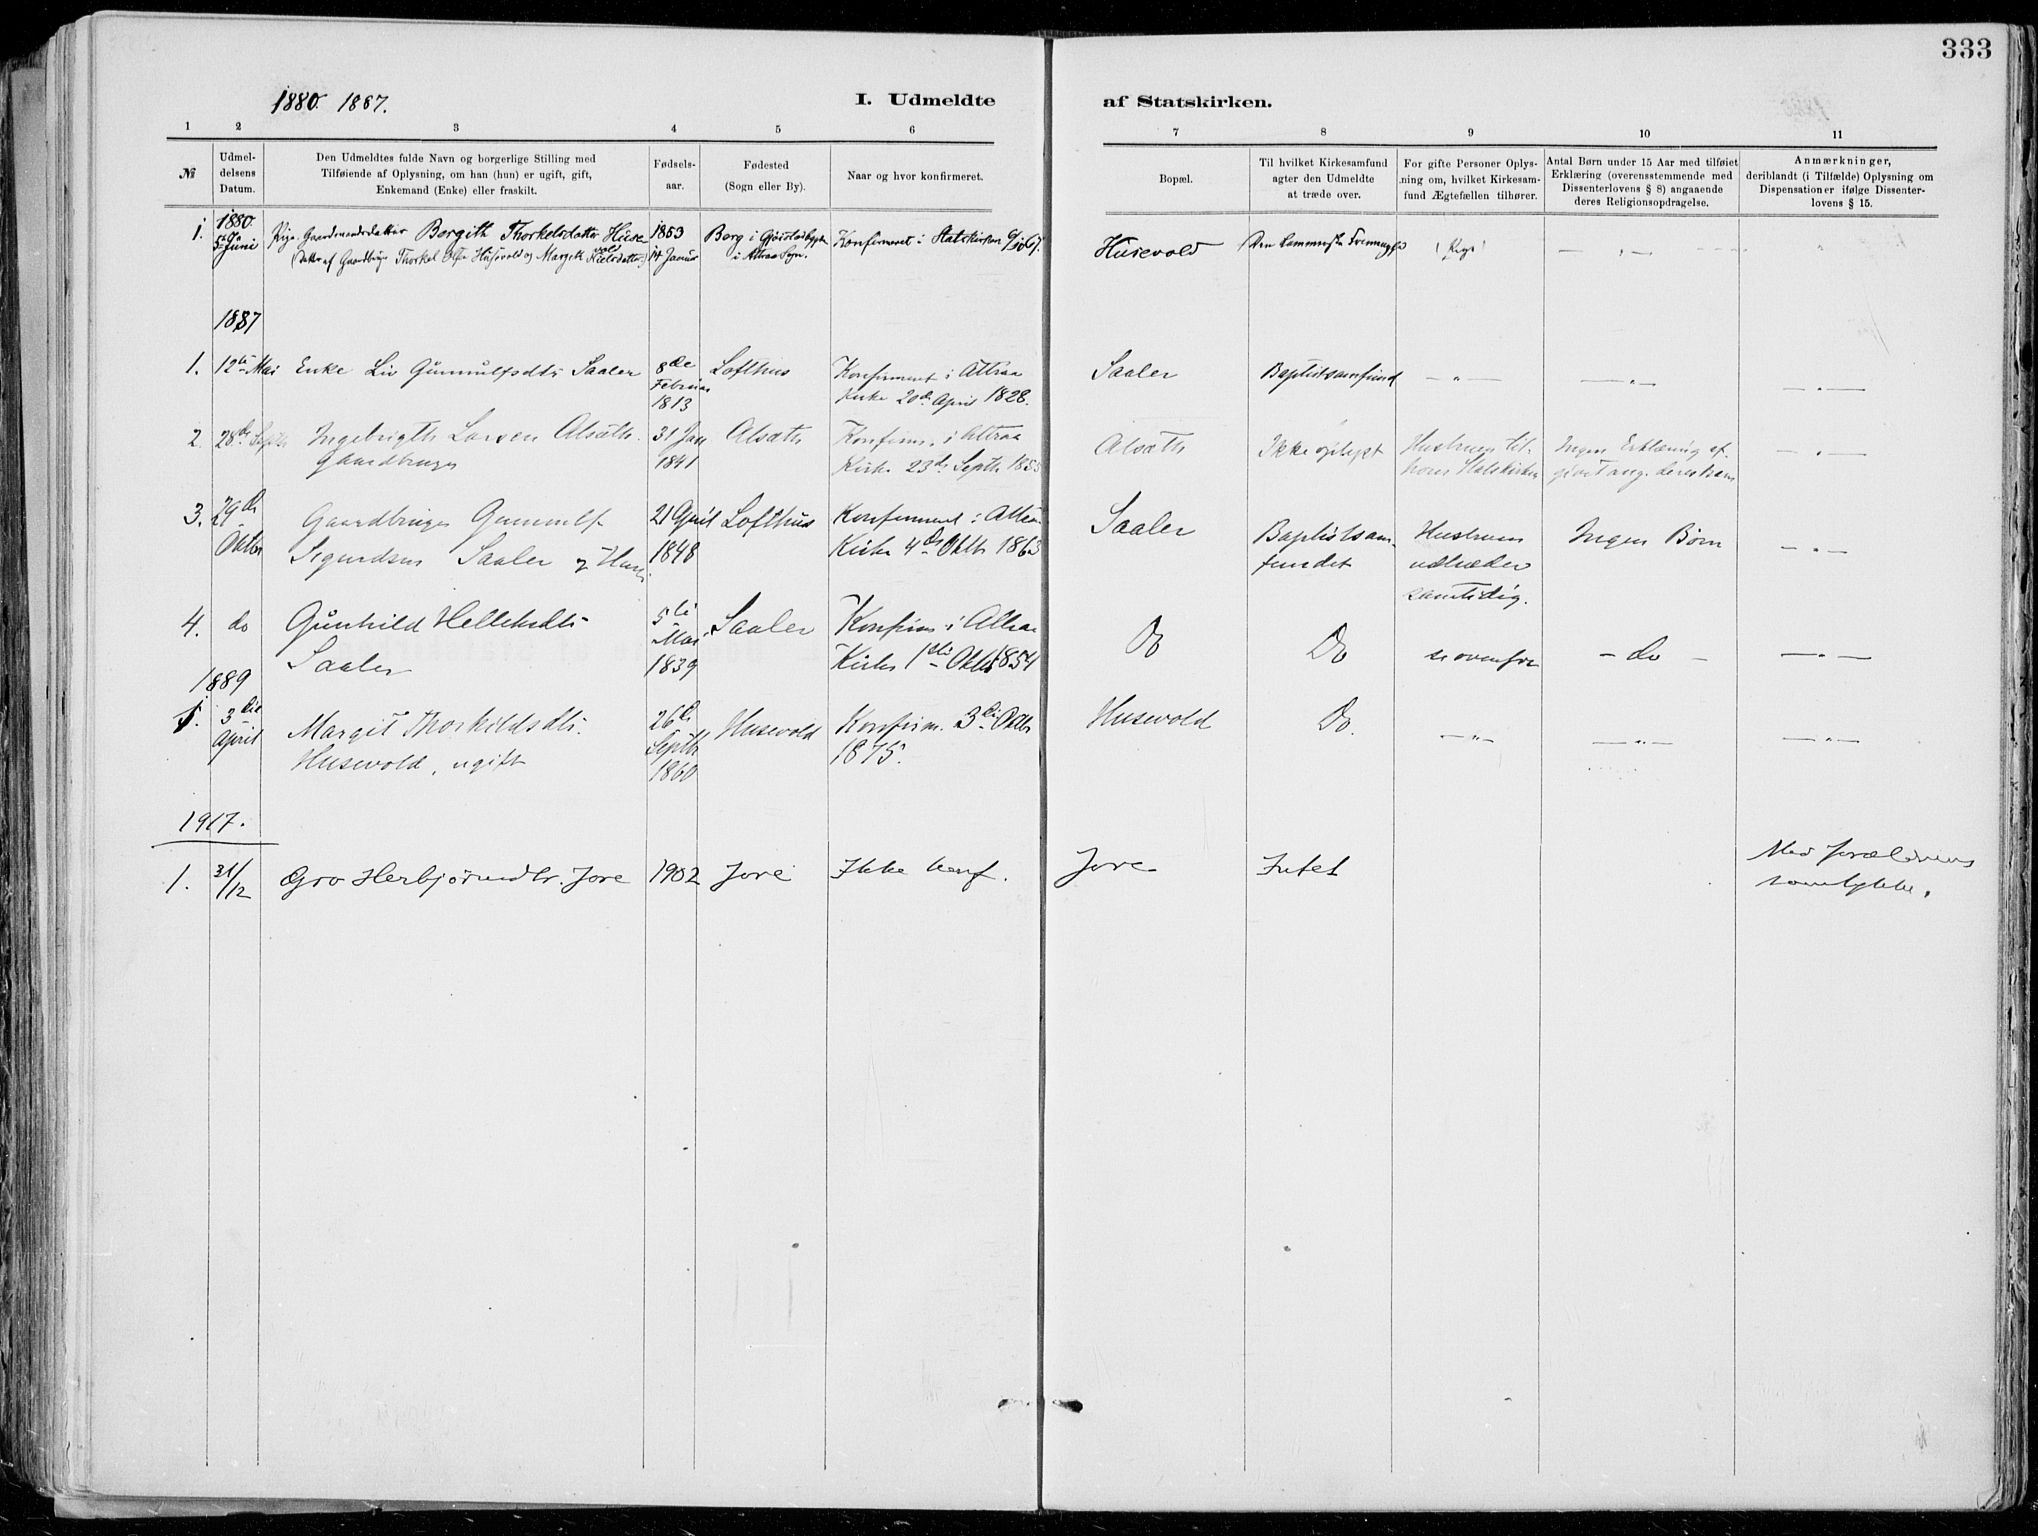 333
1880. 1887.
I. Udmeldte af Statskirken.
1 2 3 4 5 6 7 8 9 10 11
№
Udmel-
delsens
Datum.
Den Udmeldtes fulde Navn og borgerlige Stilling med
Tilføiende af Oplysning, om han (hun) er ugift, gift,
Enkemand (Enke) eller fraskilt.
Fødsels-
aar.
Fødested
(Sogn eller By).
Naar og hvor konfirmeret.
Bopæl.
Til hvilket Kirkesamfund
agter den Udmeldte
at træde over.
For gifte Personer Oplys-
ning om, hvilket Kirkesam-
fund Ægtefællen tilhører.
Antal Børn under 15 Aar med tilføiet
Erklæring (overensstemmende med
Dissenterlovens § 8) angaaende
deres Religionsopdragelse.
Anmærkninger,
deriblandt (i Tilfælde) Oplysning om
Dispensationer ifølge Dissenter-
lovens § 15.
1880.
1. 5te Juni
Pige. Gaardmandsdatter Borgith Thorkelsdatter Huse-
vold
(Datter af Gaardbruger Thorkel Husevold og Margith
1853
14 Januar
Borg i
i Attraa Sogn.
Konfirmeret i Statskirken
Husevold
Den
Pige
1887
1. 12te Mai Enke Liv Gunnulfsdtr Saaler
8de
Februar
1813
Lofthus
Konfirmeret i Attraa
Kirke 20de April 1828.
Saaler
Baptistsamfund
— " —
— " —
— " —
2. 28de Septbr Ingebrigth Larsen Alsæth.
Gaardbruger
31 Jan
1841
Alsæth
Konfirm. i Attraa
Kirke 23de Septbr 185
Alsæth
Ikke oplyst
Hustruen til-
hører Statskirken
Ingen Erklæring af-
givet ang. deres
— " —
3. 29de
Oktbr
Gaardbruger Gunnulf
Sigurdsen Saaler
21 April
1848
Lofthus
Konfirmeret i Attraa
Kirke 4de Oktbr 1863
Saaler
Baptistsam-
fundet
Hustruen
udtræder
samtidig.
Ingen Børn
— " —
4. do Gunhild Helleksdtr
Saaler
5te
Mai
1839
Saaler
Konfirm i Attraa
Kirke 1ste Oktbr 1854
Do
Do
se ovenfor
— do —
— " —
1889
1. 3die
April
Margit Thorkildsdtr.
Husevold, ugift
26de
Septbr
1860
Husevold
Konfirm. 3die Oktbr
1875.
Husevold
Do.
— " —
— " —
— " —
1917.
1. 31/12 Gro Herbjørnsdtr. Jore 1902 Jore Ikke konf.
Jore
Intet
Med forældrenes
samtykke.